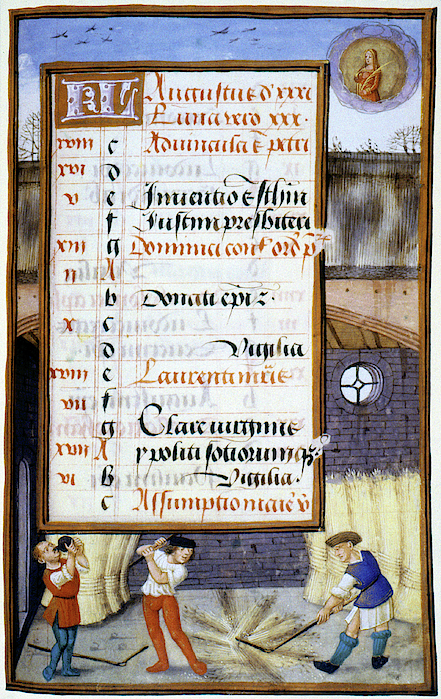 KL Augustus d xxxi
Luna vero xxx.
xviii c Advincula S petri
xvi d
v e Inventio S Sthin
f Justini presbiteri
xiii g Dominici conf ord p
ii A
b Donati epi z.
x c
d Vigilia
xviii e Laurentii mris
vii f
g Clare virginis
xvii A ypoliti sotiorumq3.
vi B Vigilia.
c Assumptio marie v